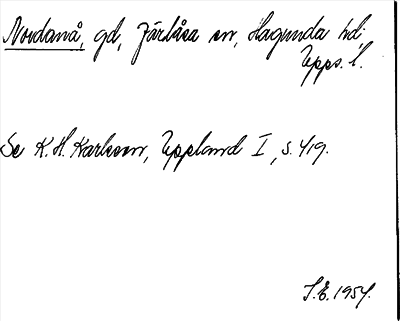 Nordanå, gd, Järlåsa sn, Hagunda hd.
Upps. l.
Se K. H. Karlsson, Uppland I, s. 419.
S.E. 1954.